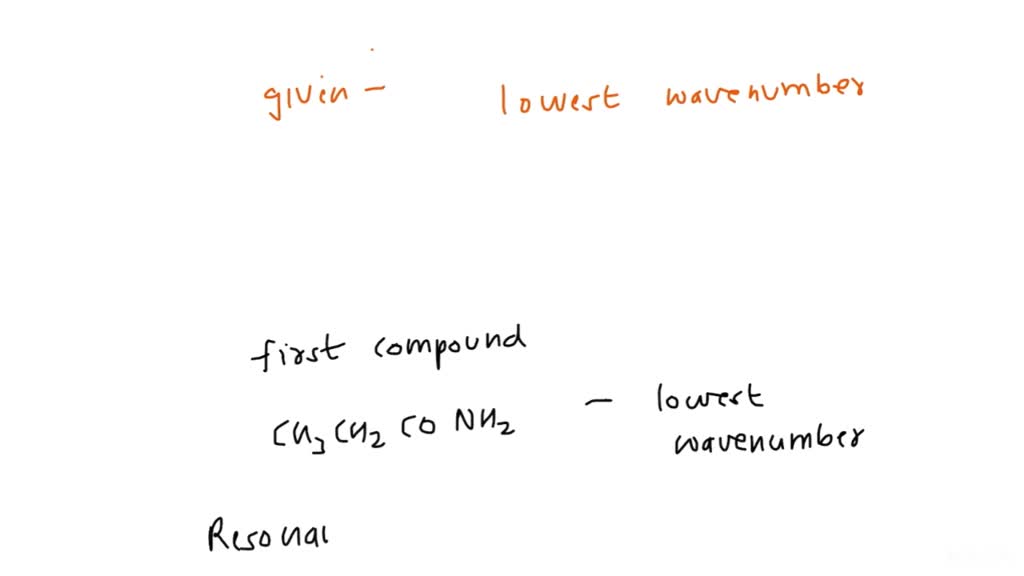 given - lowest wavenumber
first compound
CH3CH2CONH2 - lowest
wavenumber
Resonan